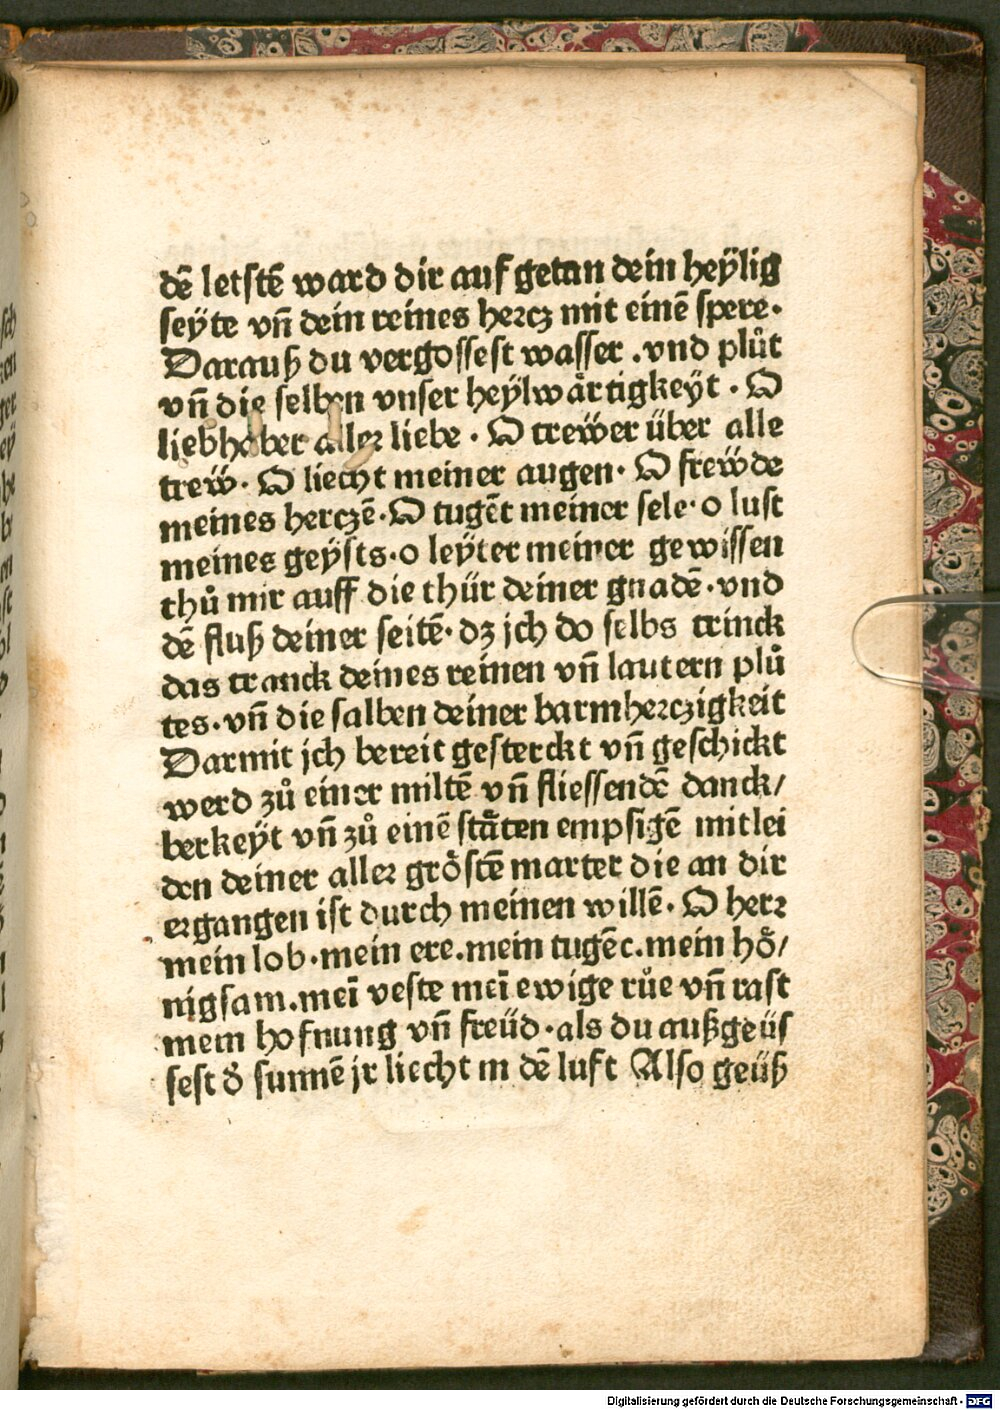 dē letstē ward dir auf getan dein heÿlig
seÿte vñ dein reines hercz mit einē spere.
Darauß du vergossest wasser .vnd plůt
vñ die selben vnser heÿlwårtigkeÿt . O
liebhaber aller liebe . O trew̎er über alle
trew̎. O liecht meiner augen. O frew̎de
meines herczē. O tugēt meiner sele. o lust
meines geÿsts. o leÿter meiner gewissen
thů mir auff die thür deiner gnadē. vnd
dē fluß deiner seitē. dz jch do selbs trinck
das tranck deines reinen vñ lautern plů
tes. vñ die salben deiner barmherczigkeit
Darmit jch bereit gesterckt vñ geschickt
werd zů einer miltē vñ fliessendē danck/
berkeÿt vñ zů einē ståten empsigē mitlei
den deiner aller gröstē marter die an dir
ergangen ist durch meinen willē. O herr
mein lob. mein ere. mein tugēt. mein hö/
nigsam. meī veste meī ewige růe vñ rast
mein hofnung vñ freüd. als du außgeüs
sest d̄ sunnē jr liecht in dē luft Also geüß
Digitalisierung gefördert durch die Deutsche Forschungsgemeinschaft - DFG